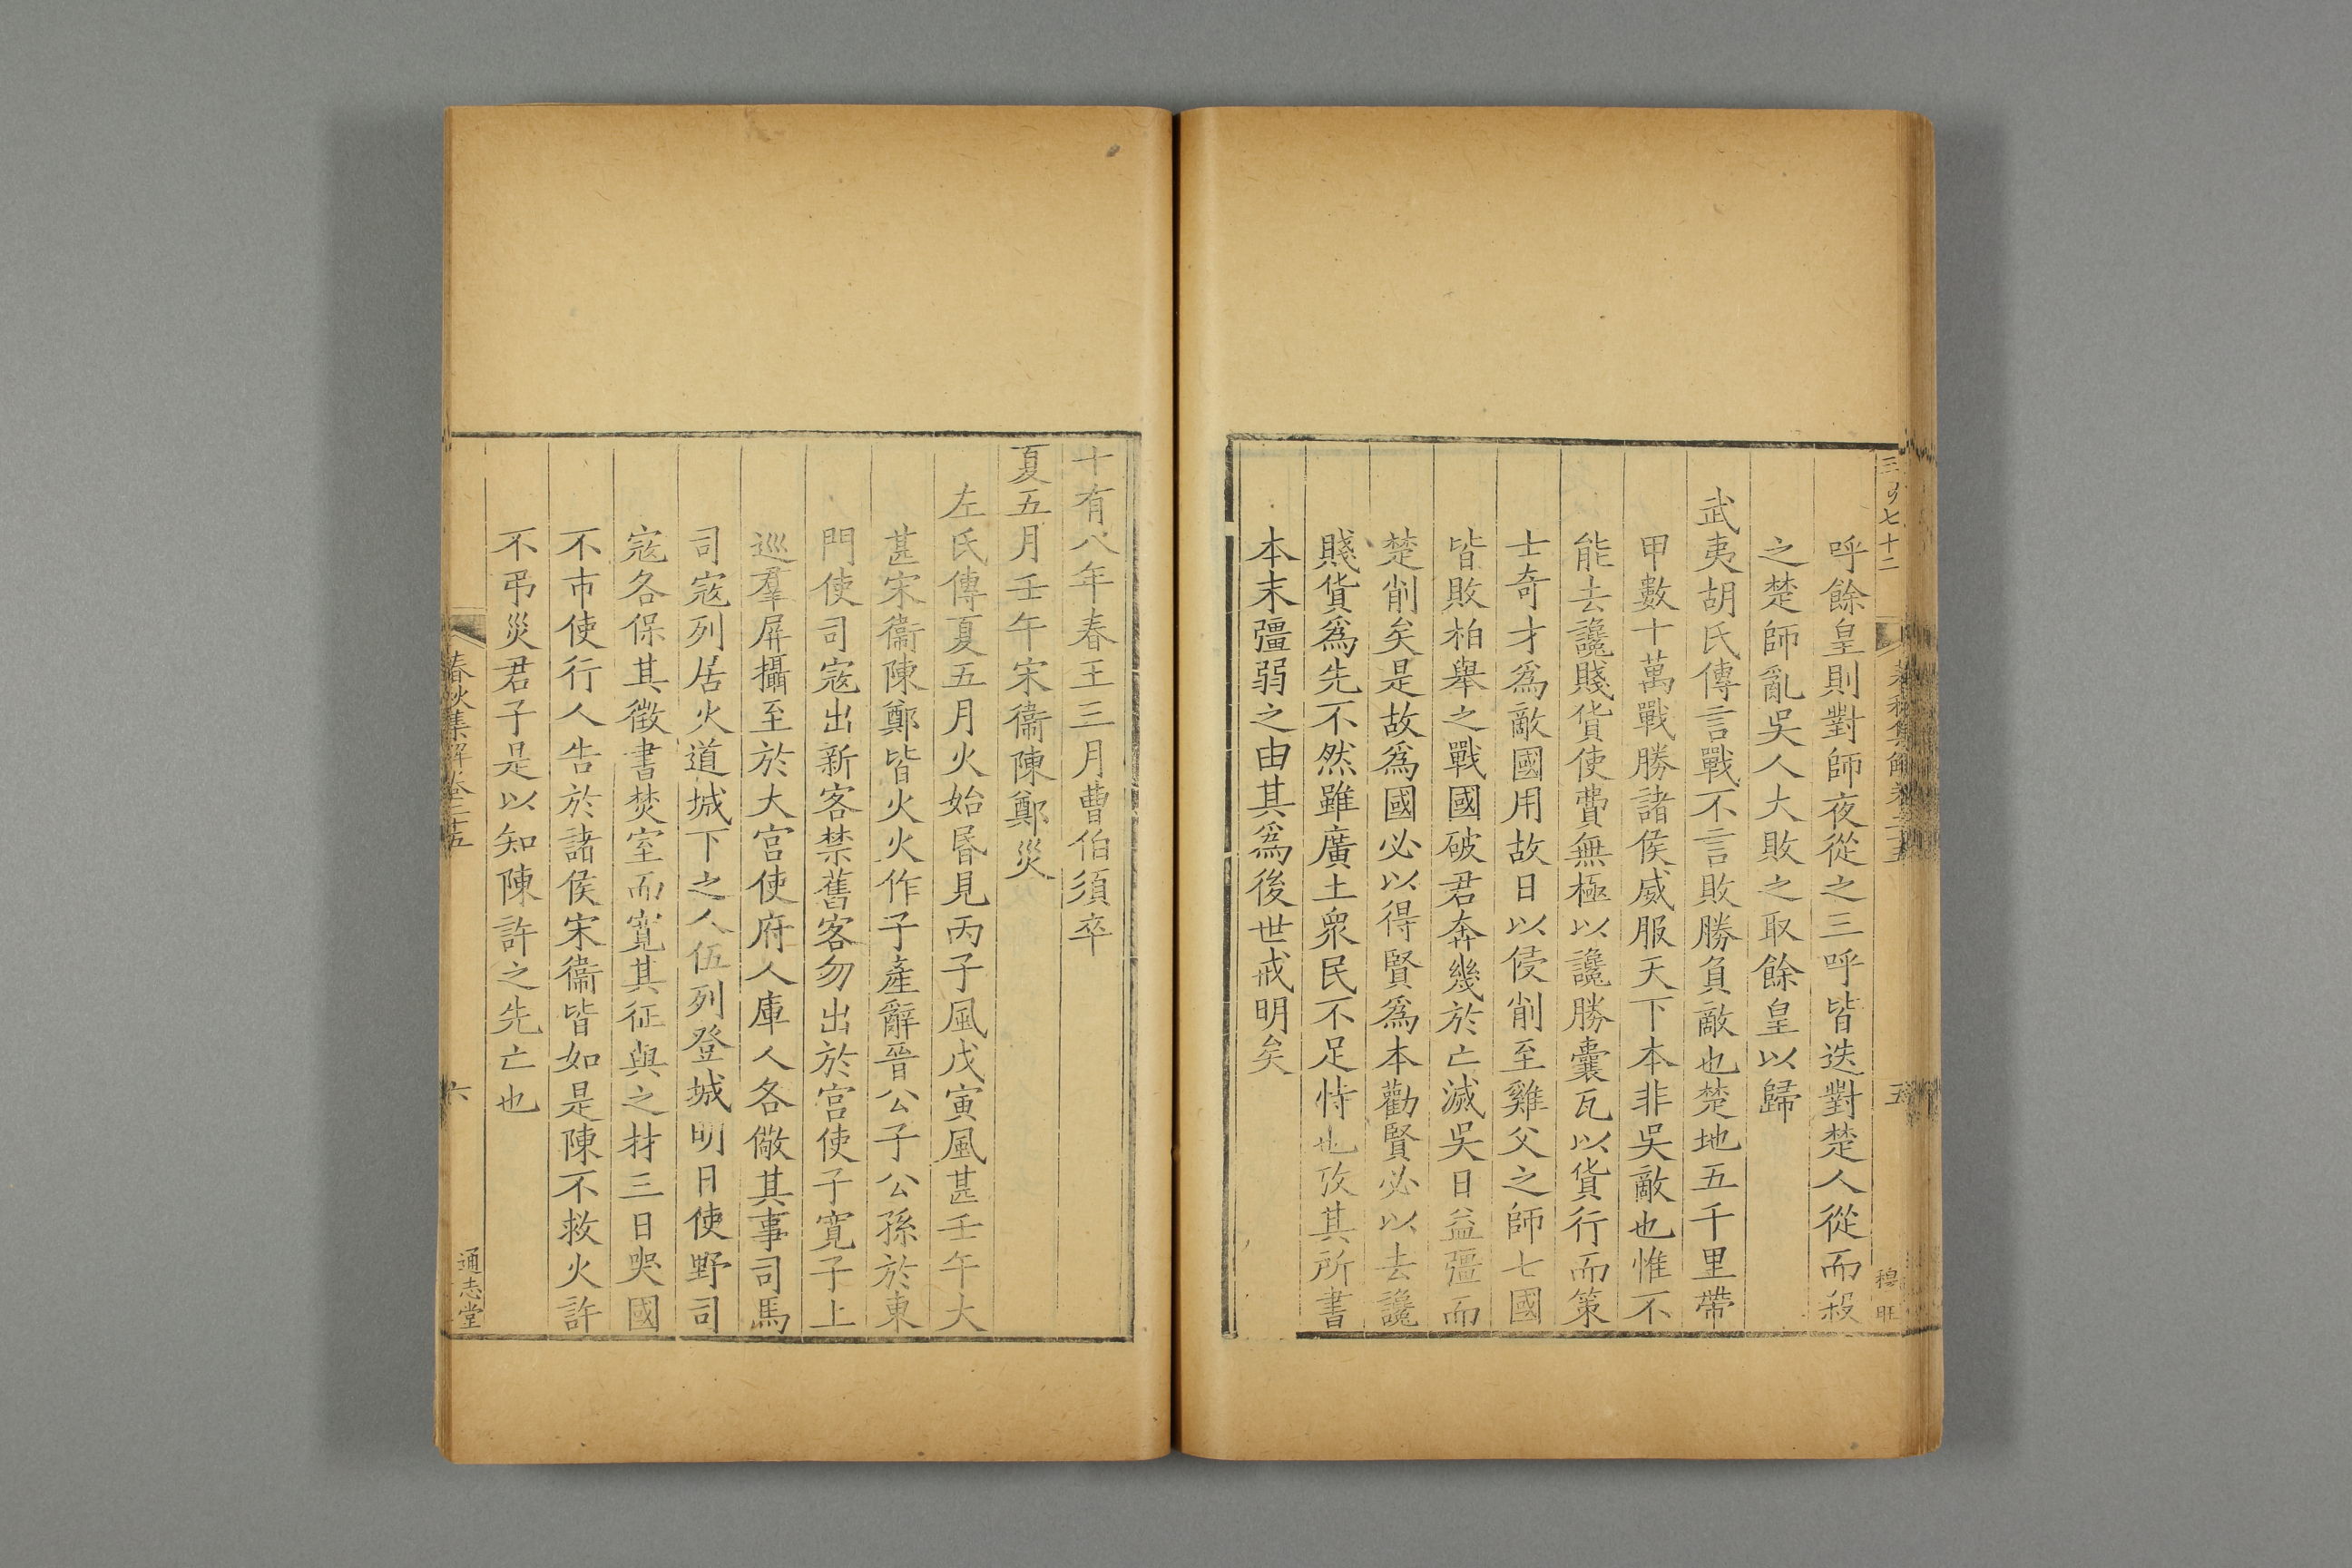 呼餘皇則對師夜從之三呼皆迭對楚人從而殺
之楚師亂吳人大敗之取餘皇以歸
武夷胡氏傳言戰不言敗勝負敵也楚地五千里帶
甲數十萬戰勝諸侯威服天下本非吳敵也惟不
能去讒賤貨使費無極以讒勝囊瓦以貨行而策
士奇才爲敵國用故日以侵削至雞父之師七國
皆敗柏舉之戰國破君奔幾於亡滅吳日益彊而
楚削矣是故爲國必以得賢爲本勸賢必以去讒
賤貨爲先不然雖廣土衆民不足恃也攷其所書
本末彊弱之由其爲後世戒明矣
十有八年春王三月曹伯須卒
夏五月壬午宋衞陳鄭災
左氏傳夏五月火始昏見丙子風戊寅風甚壬午大
甚宋衞陳鄭皆火火作子產辭晉公子公孫於東
門使司寇出新客禁舊客勿出於宮使子寬子上
巡羣屏攝至於大宮使府人庫人各儆其事司馬
司寇列居火道城下之人伍列登城明日使野司
寇各保其徵書焚室而寬其征與之材三日哭國
不市使行人告於諸侯宋衞皆如是陳不救火許
不弔災君子是以知陳許之先亡也
春秋集解卷二十五
六
通志堂